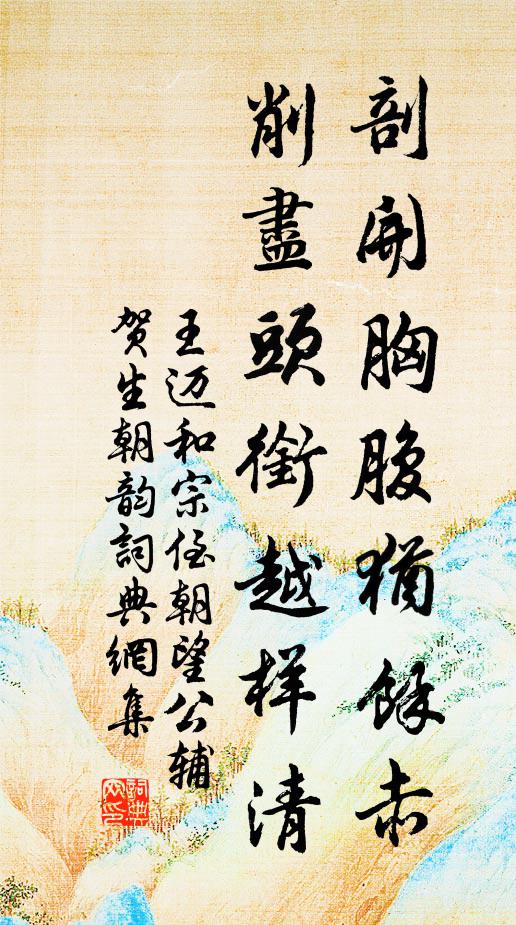 剖開胸腹猶餘赤
削盡頭銜越樣清
王迈和宗侄朝望公辅
贺生朝韵詞典網集
詞典网印